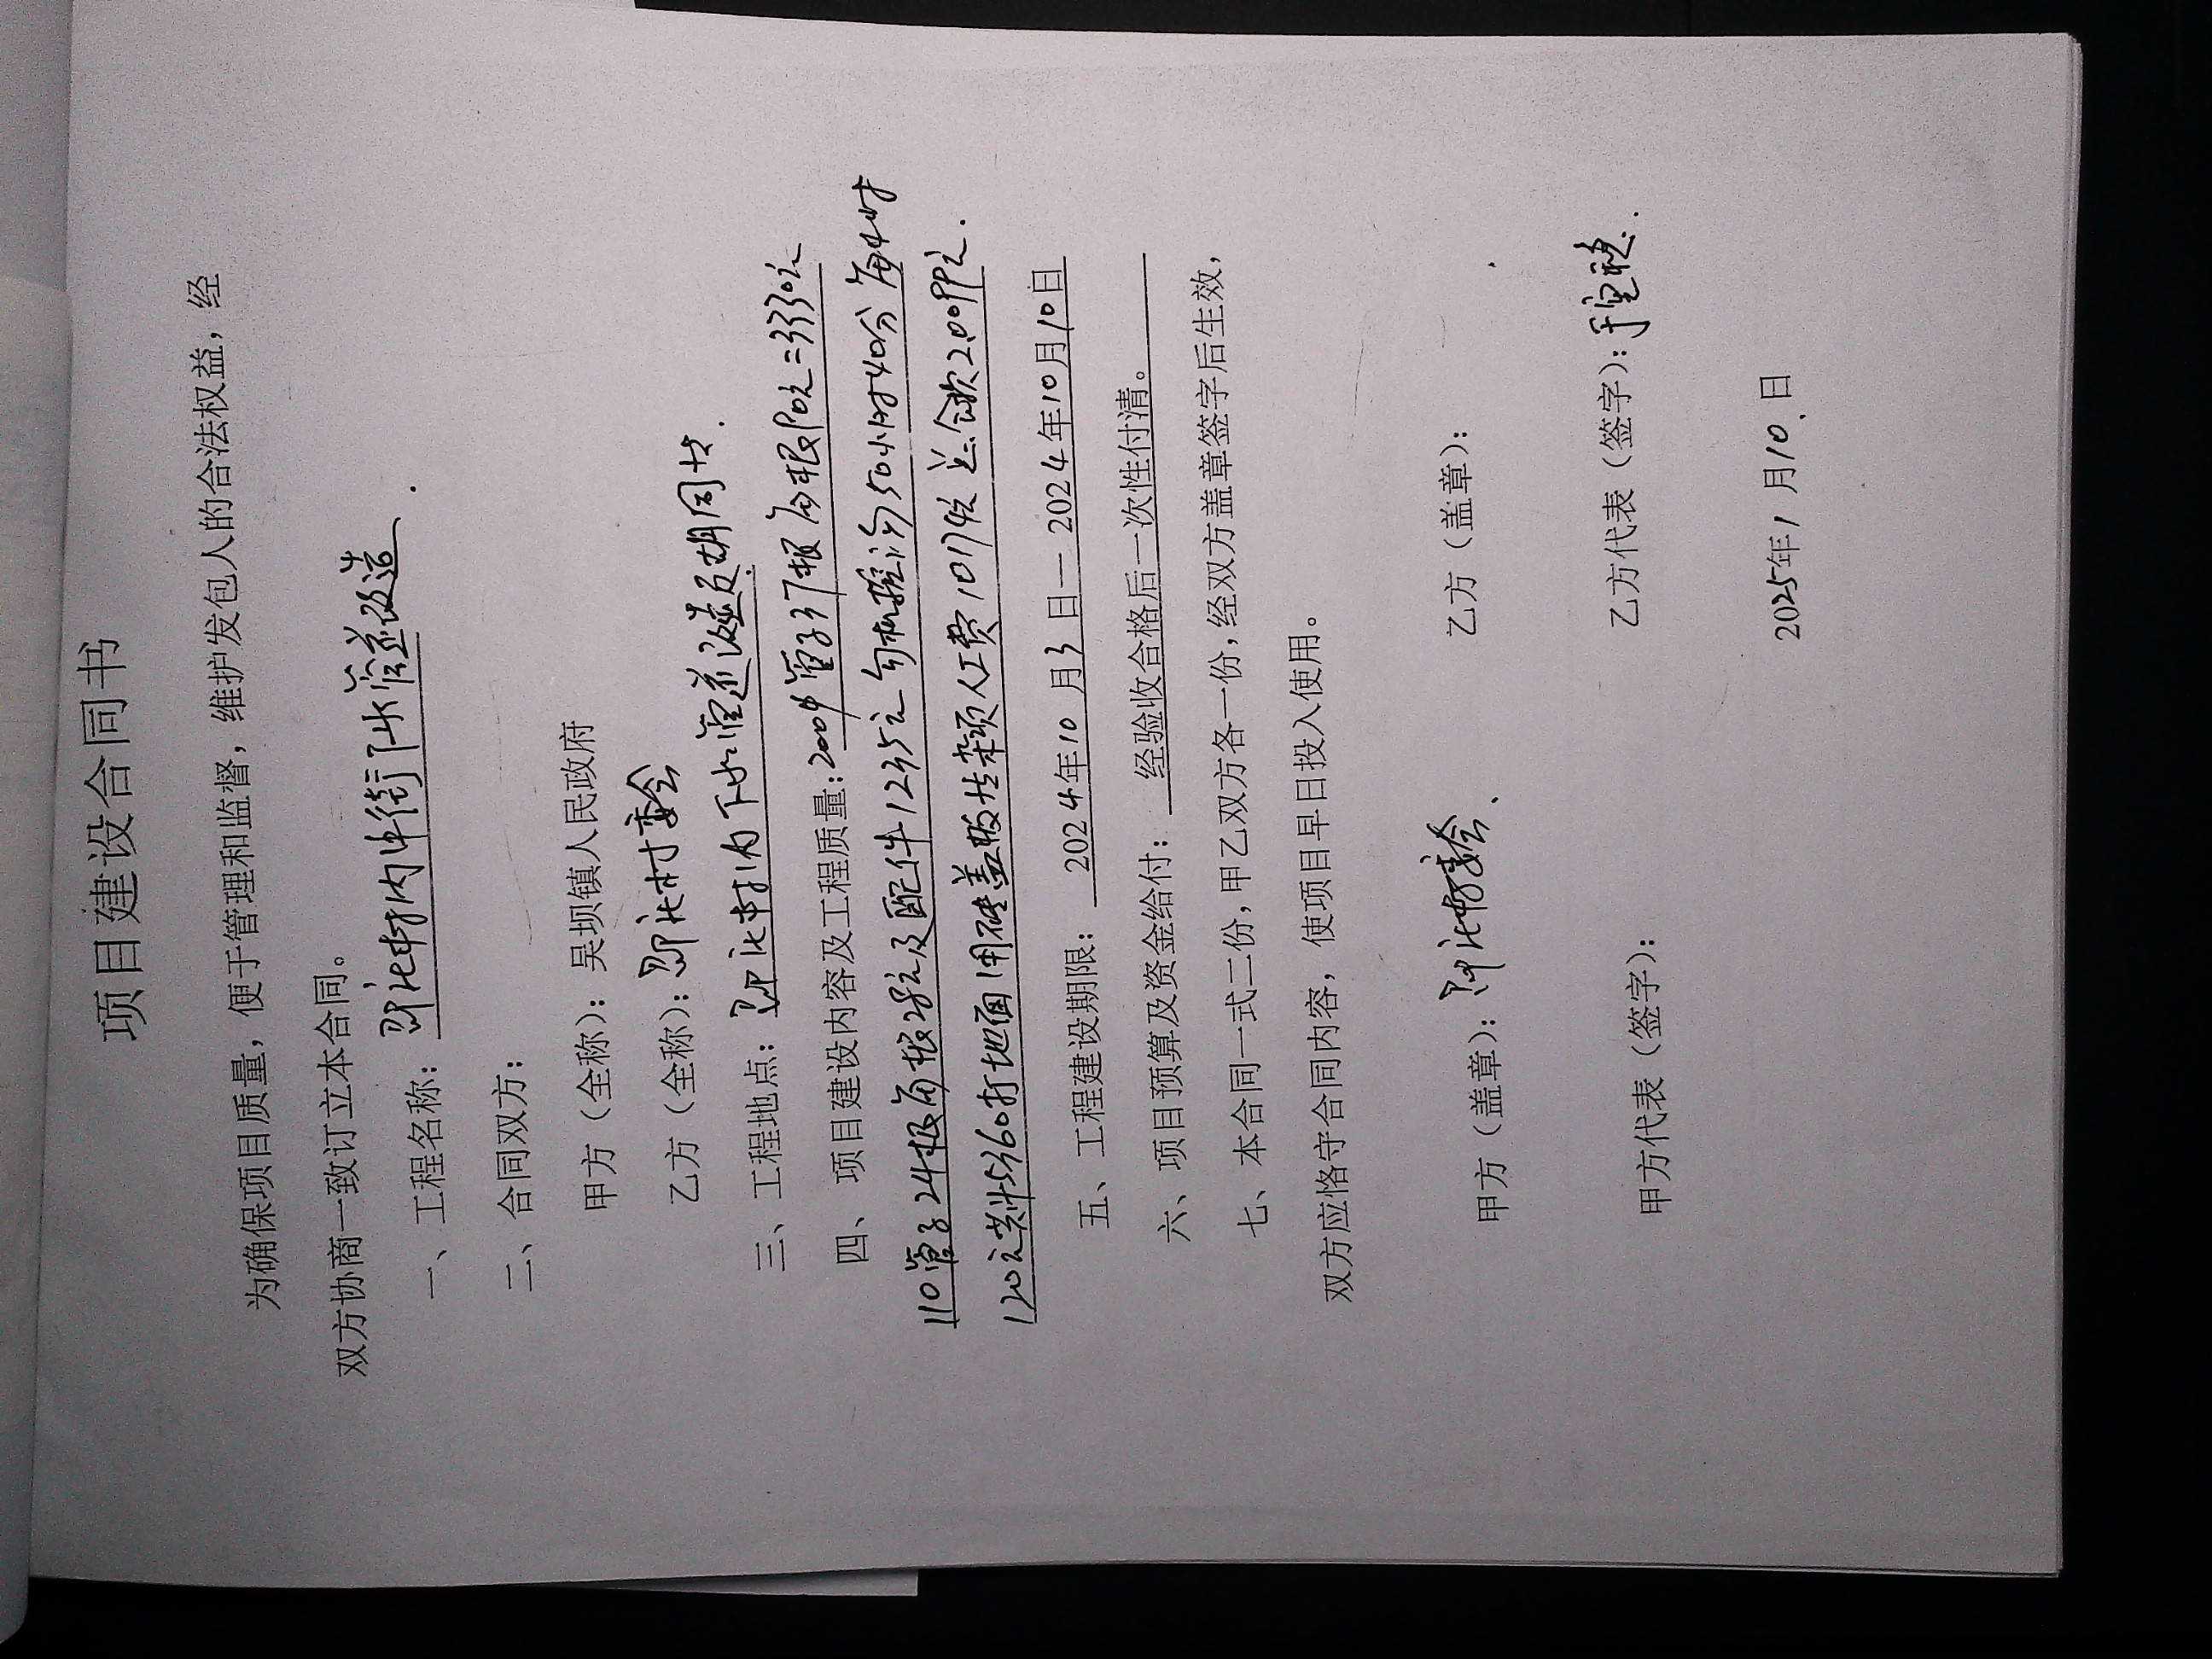 项目建设合同书
为确保项目质量，便于管理和监督，维护发包人的合法权益，经
双方协商一致订立本合同。
一、工程名称：村内中街下水管道改造
二、合同双方：
甲方（全称）：吴坝镇人民政府
乙方（全称）：村委会
三、工程地点：村内下水管道及胡同
四、项目建设内容及工程质量：200中管子37根每根90元=3330元
110管子24根每根28元及配件1235元 勾机挖沟50小时40分 每小时
120元共计5360打地面用砼盖板杂项人工费10174元 总合款20099元.
五、工程建设期限：2024年10月3日—2024年10月10日
六、项目预算及资金给付：经验收合格后一次性付清。
七、本合同一式二份，甲乙双方各一份，经双方盖章签字后生效，
双方应恪守合同内容，使项目早日投入使用。
甲方（盖章）：村委会 乙方（盖章）：
甲方代表（签字）： 乙方代表（签字）：
2025年1月10日